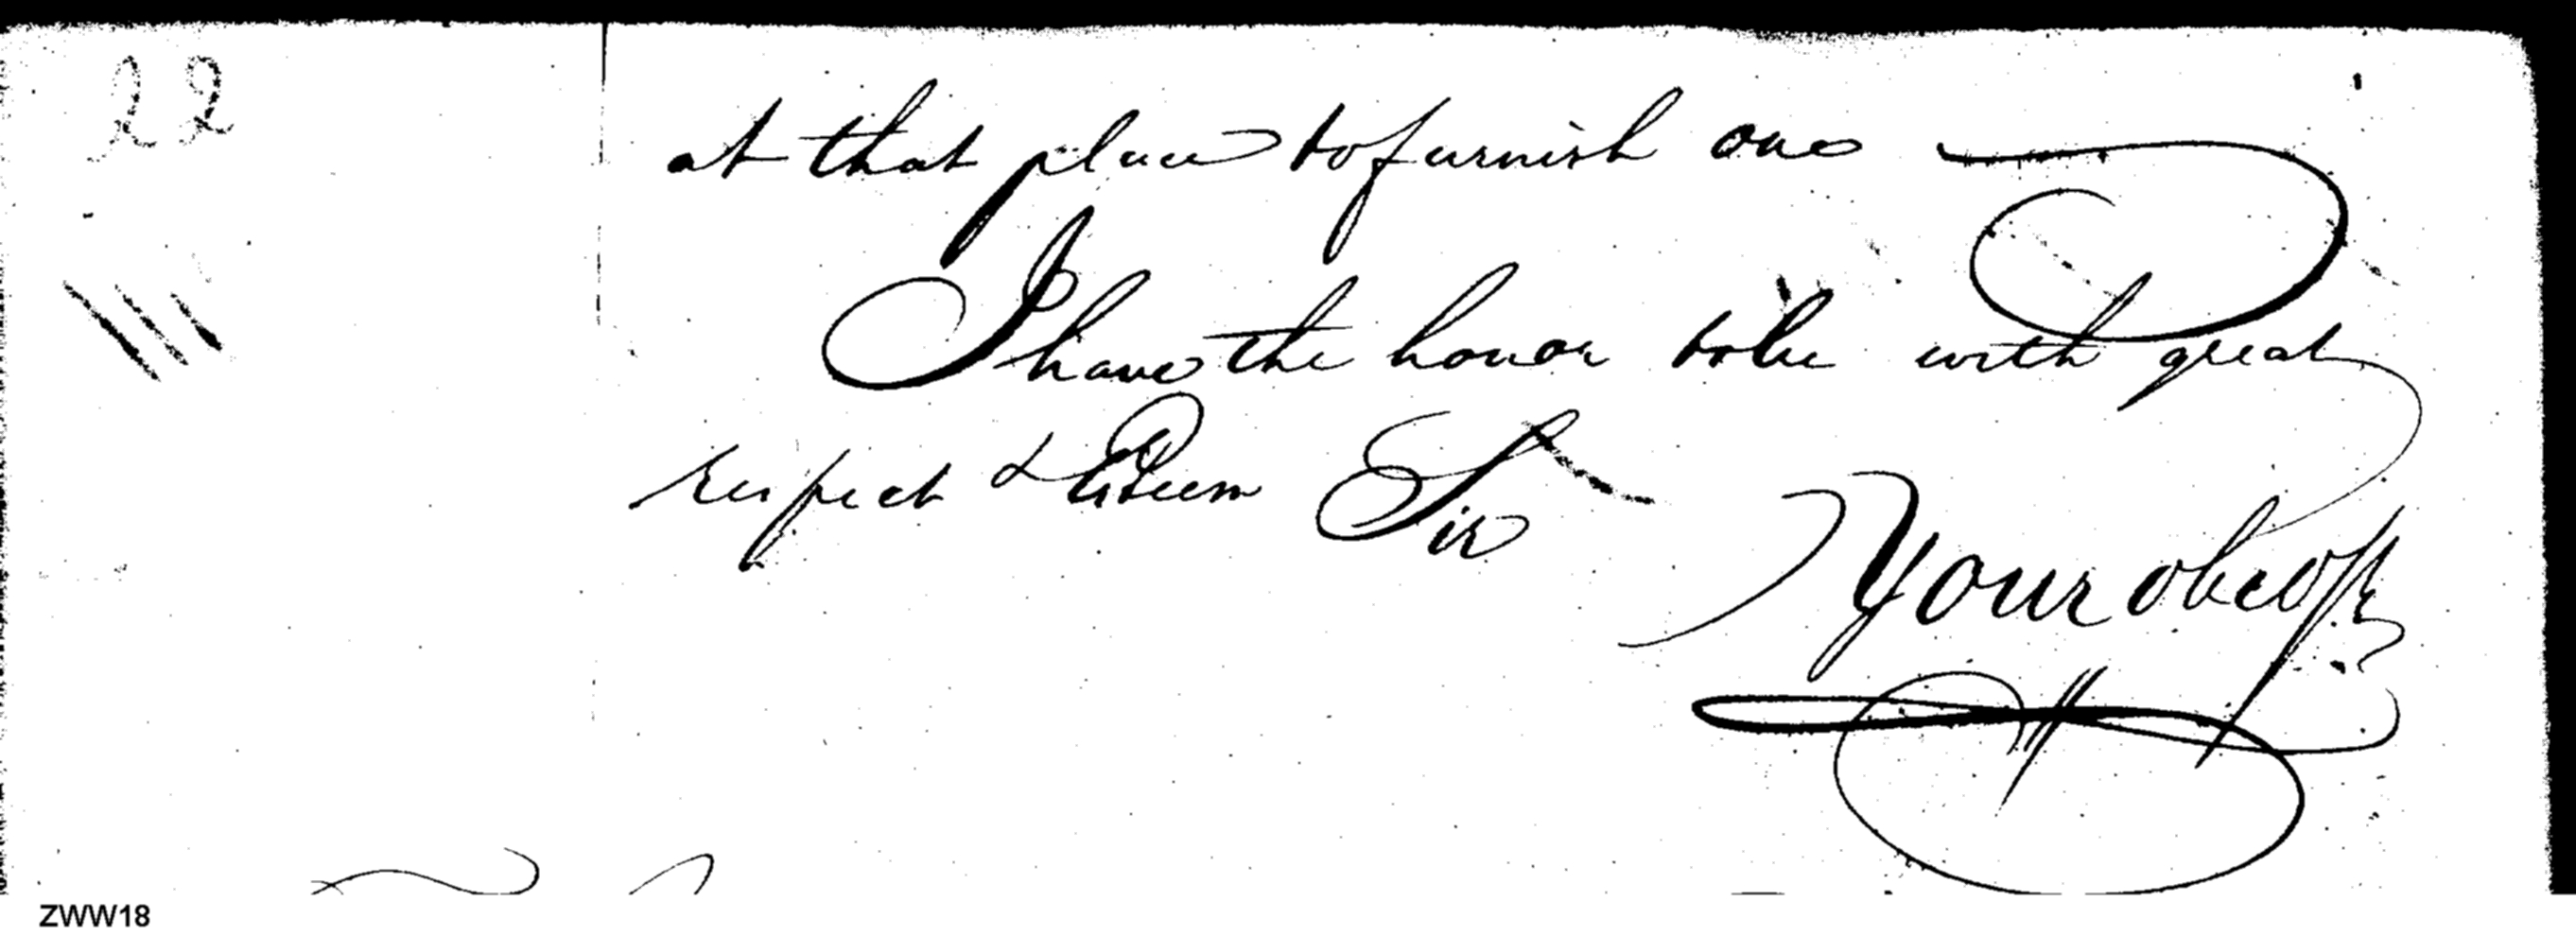 22
at that place to furnish one
I have the honor to be with great
respect & Esteem Sir
Your obed
ZWW18